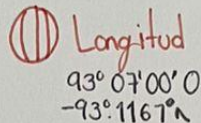 Longitud
93° 07' 00' O
-93°.1167°